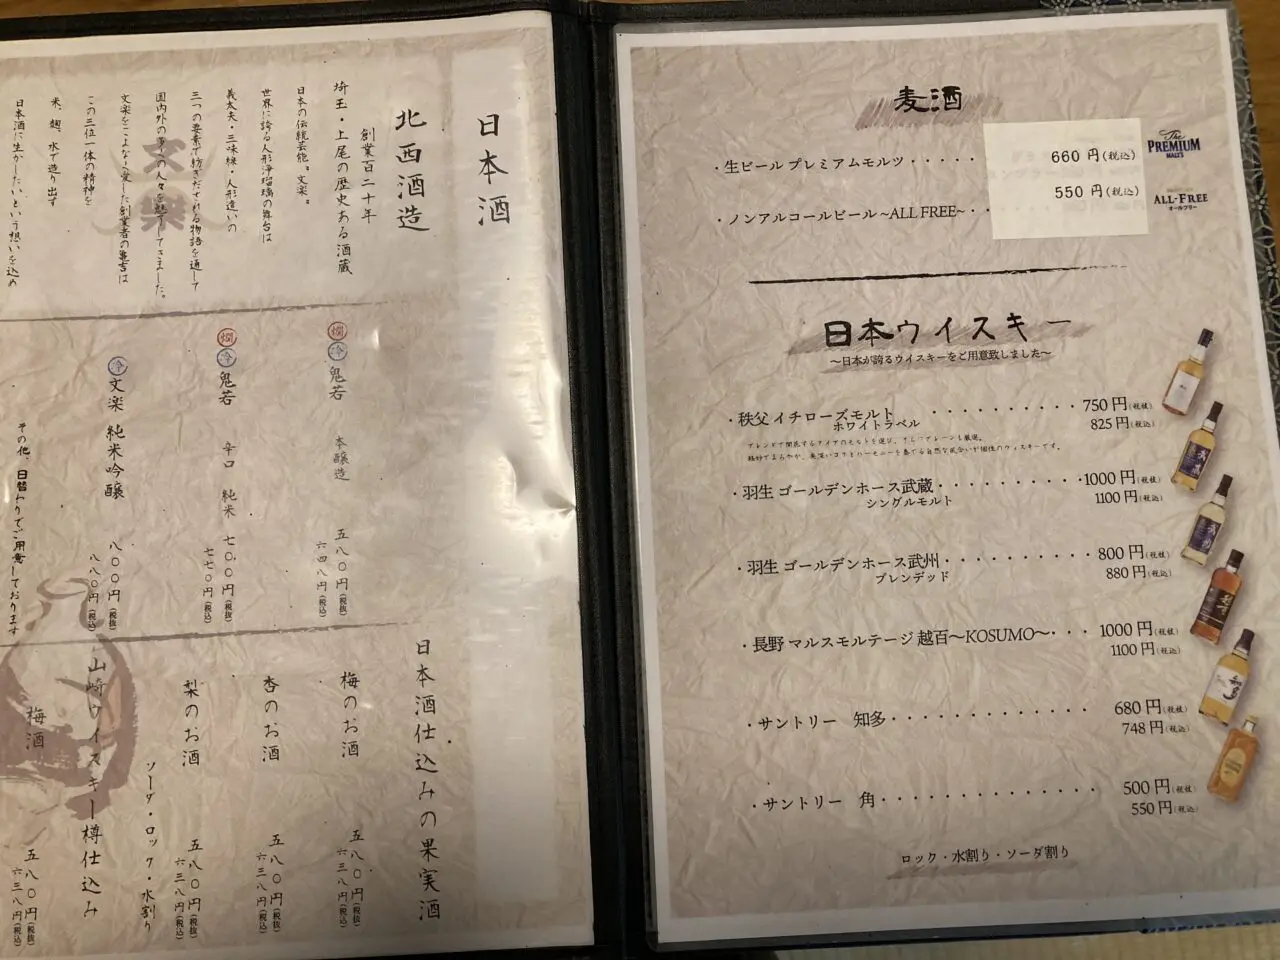 日本酒
北西酒造
創業百二十年
埼玉・上尾の歴史ある酒蔵
日本の伝統芸能、文楽。
世界に誇る人形浄瑠璃の舞台は
義太夫・三味線・人形遣いの
三つの要素で紡ぎだされる物語を通して
国内外の多くの人々を魅了してきました。
文楽をこよなく愛した創業者の亀吉は
この三位一体の精神を
米、麹、水で造り出す
日本酒に生かしたいという想いを込め
文樂
燗 冷 鬼若 本醸造
五八〇円(税抜)
六四八円(税込)
燗 冷 鬼若 辛口 純米
七〇〇円(税抜)
七七〇円(税込)
冷 文楽 純米吟醸
八〇〇円(税抜)
八八〇円(税込)
その他、日替わりでご用意しております
日本酒仕込みの果実酒
梅のお酒
五八〇円(税抜)
六三八円(税込)
杏のお酒
五八〇円(税抜)
六三八円(税込)
梨のお酒
五八〇円(税抜)
六三八円(税込)
ソーダ・ロック・水割り
山崎ウイスキー樽仕込み
梅酒
五八〇円(税抜)
六三八円(税込)
麦酒
・生ビール プレミアムモルツ・・・・・ 660 円(税込)
The PREMIUM MALT'S
550 円(税込)
・ノンアルコールビール ~ALL FREE~・・
ALL-FREE
オールフリー
日本ウイスキー
〜日本が誇るウイスキーをご用意致しました〜
・秩父 イチローズモルト ・・・・・・・・・・ 750 円(税抜)
ホワイトラベル 825 円(税込)
・羽生 ゴールデンホース武蔵・・・・・・・・・・1000 円(税抜)
シングルモルト 1100 円(税込)
・羽生 ゴールデンホース武州・・・・・・・・・・ 800 円(税抜)
ブレンデッド 880 円(税込)
・長野 マルスモルテージ 越百〜KOSUMO〜・・・ 1000 円(税抜)
1100 円(税込)
・サントリー 知多・・・・・・・・・・・・・ 680 円(税抜)
748 円(税込)
・サントリー 角・・・・・・・・・・・・・・ 500 円(税抜)
550 円(税込)
ロック・水割り・ソーダ割り